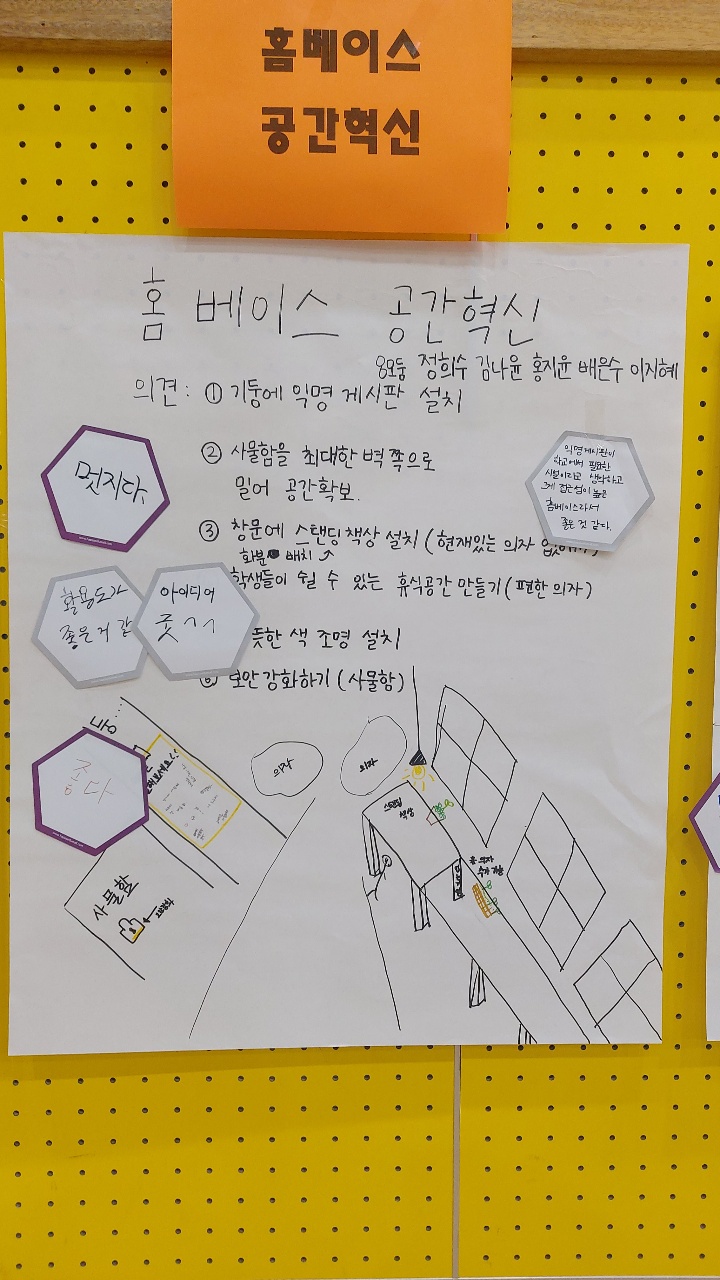 홈베이스
공간혁신
홈 베이스 공간혁신
8모둠 정희수 김나윤 홍지윤 배은수 이지혜
의견: ① 기둥에 익명 게시판 설치
② 사물함을 최대한 벽 쪽으로
밀어 공간확보.
③ 창문에 스탠딩 책상 설치 (현재있는 의자
화분 배치
학생들이 쉴 수 있는 휴식공간 만들기 (편한 의자)
뜻한 색 조명 설치
보안 강화하기 (사물함)
멋지다.
익명게시판이
학교에서 필요한
시설이라고 생각하고
그게 접근성이 높은
홈베이스라서
좋은 것 같다.
활용도가
좋은거 같
아이디어
굿 ㄱㄱ
좋다
의자
의자
스탠딩
책상
사물함